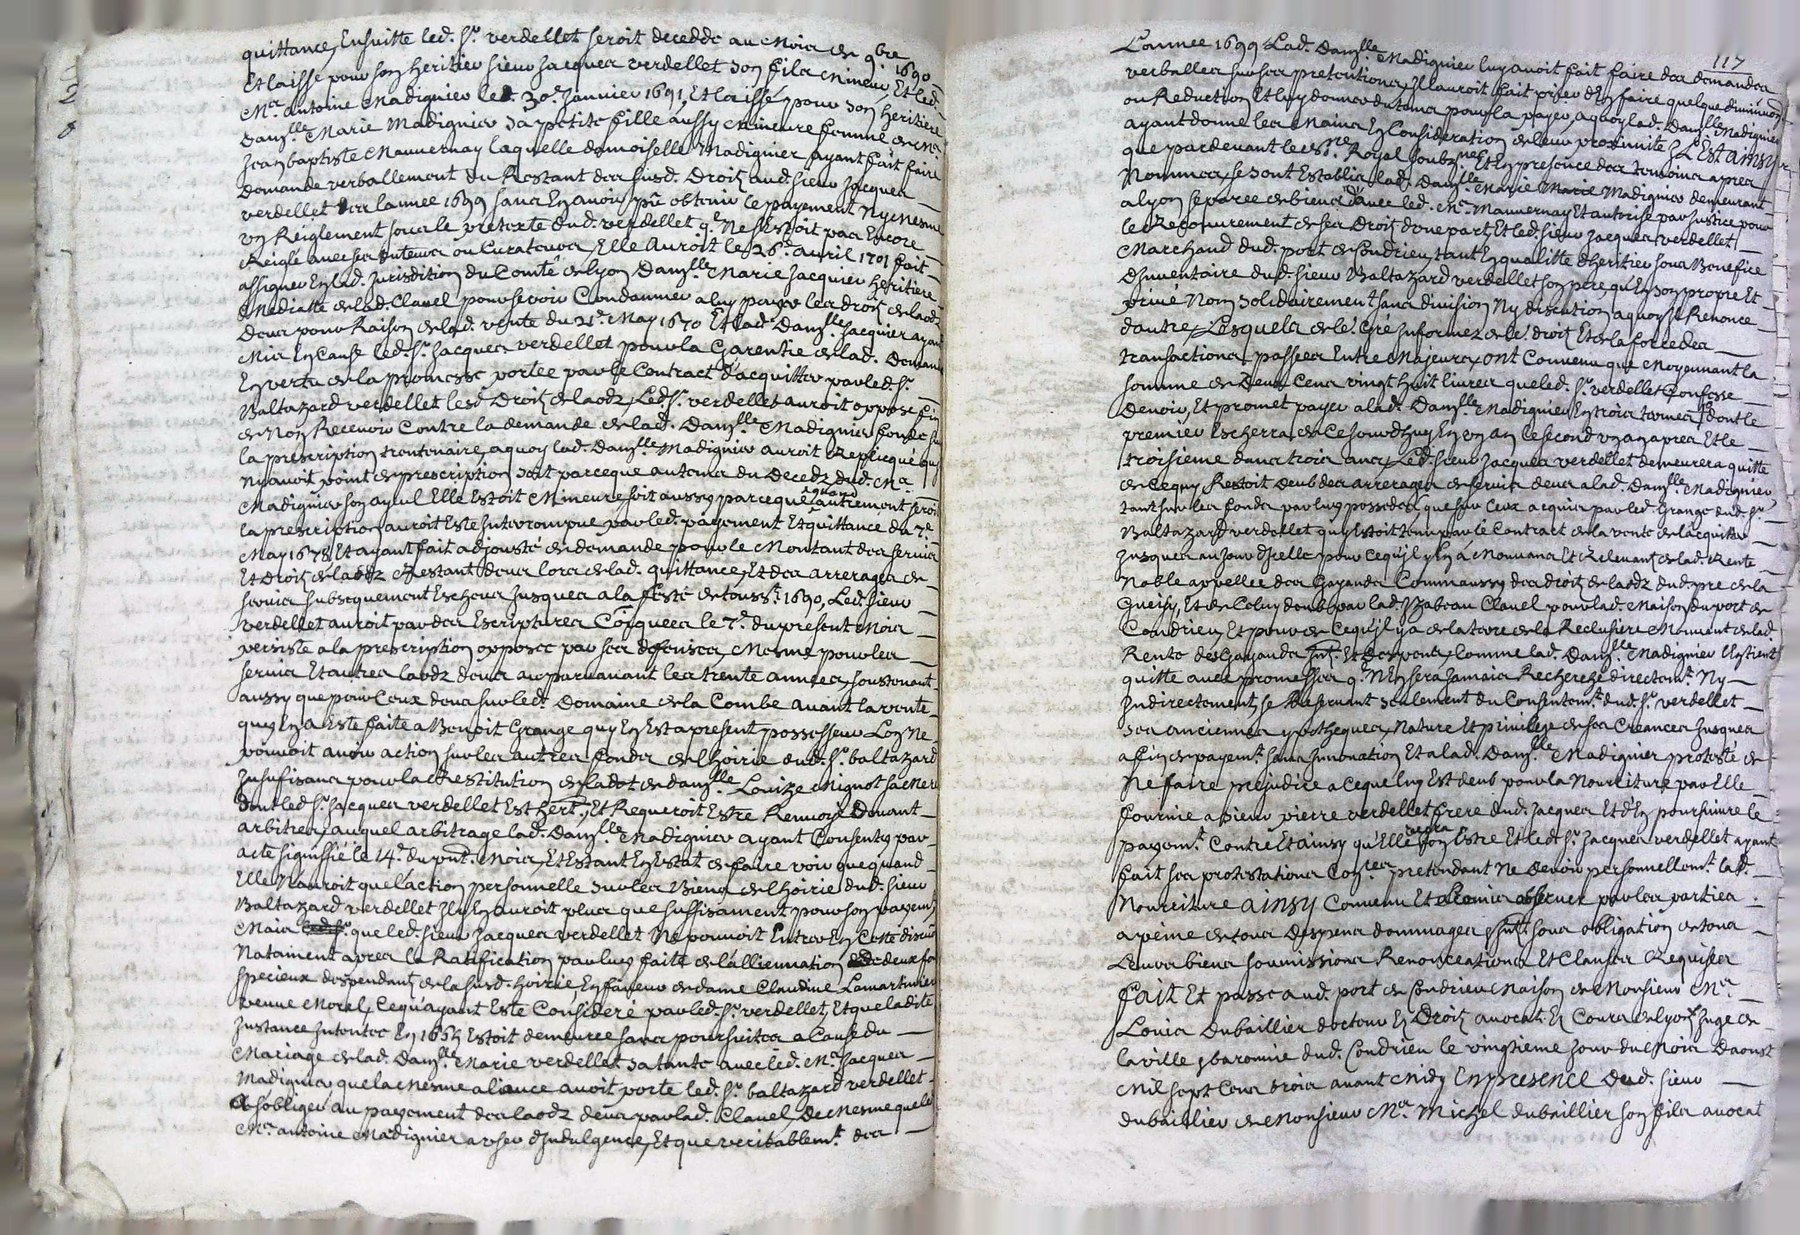 quittance, Ensuitte led. Sr. verdellet seroit decedde au Mois de 9bre 1690
Et laissé pour son heritier sieur Jacques verdellet son fils Mineur, Et led.
Mre antoine Madignier le 30e Janvier 1691, Et laissé pour son heritiere
damslle Marie Madignier sa petite fille aussy Mineure femme de Mre
Jean baptiste Mauvernay laquelle damoiselle Madignier ayant fait faire
demande verballement du Restant des susd. Droitz aud. sieur Jacques
verdellet des lannee 1699 sans En avoir pû obtenir le payement Ny Mesme
un Reiglement sous le pretexte dud. verdellet qe Nestoit pas Encore
Reiglé avec ses tuteurs ou Curateurs, Elle Auroit le 26e avril 1701 fait
assigner En lad. Jurisdition du Comté de lyon Damslle Marie Jacquier heritiere
Mediatte de lad. Clavel pour se voir Condamner a luy payer les droitz de laodz
deus pour Raison de lad. vente du 21e May 1670 Et lad. Damslle Jacquier ayant
Mis En Cause led. Sr. Jacques verdellet pour la Garentie de lad. Demande
En vertu de la promesse portee par le Contract d'acquitter par led. Sr.
Baltazard verdellet lesd. Droitz de laodz, Led. Sr. verdellet auroit opposé fin
de Non Recevoir Contre la demande de lad. Damslle Madignier fondée sur
la prescription trentenaire, a quoy lad. Damslle Madignier auroit Replicqué qu'il
Ny avoit point de prescription soit parceque au temps du Decedz dud. Mre
Madignier son ayeul Elle Estoit Mineure soit aussy parceque quand autrement seroit
la prescription auroit Este Interrompue par led. payement Et quittance du 7e
May 1678 Et ayant fait adjousté de demande pour le Montant des servis
Et Droitz de laodz Restant deus lors de lad. quittance, Et des arrerages de
servis subsequement Escheus Jusques a la feste de touss. 1690, Led. sieur
verdellet auroit par des Escriptures Coquées le 7e. du present Mois
persisté a la prescription opposée par ses defenses, Mesme pour les
servis Et autres laodz deus auparavant les trente années, soustenant
aussy que pour Ceux deus sur led. Domaine de la Combe avant la vente
quy En a Este faite a Benoit Grange quy En Est a present possesseur Lon Ne
pouvoit avoir action sur les autres fondz de lhoirie dud. Sr. baltazard
Insufisans pour la Restitution de la dot de damslle Louize Mignot sa Mere
dont led. Sr. Jacques verdellet Est hert., Et Requeroit Estre Renvoié Devant
arbitres, auquel arbitrage lad. Damslle Madignier ayant Consenty par
acte signiffié le 14e. du pnt. Mois, Et Estant En Estat de faire voir que quand
Elle N'auroit que l'action personnelle sur les Biens de lhoirie dud. sieur
Baltazard verdellet Il y En auroit plus que suffisament pour son payemt,
Mais que led. sieur Jacques verdellet Ne pouvoit Entrer En Cette discution
Notament apres la Ratification par luy faite de l'allienation de deux fondz
specieux despendants de la susd. hoirie, En faveur de dame Claudine Lamartinier
veuve Morel, Ce qu'ayant Este Consideré par led. Sr. verdellet, Et que ladite
Instance Intentée En 1655 Estoit demeurée sans poursuittes a Cause du
Mariage de lad. Damslle Marie verdellet sa tante avec led. Mre Jacques
Madignier, que la Mesme aliance avoit porté led. Sr. baltazard verdellet
a s'obliger au payement des laodz deus par lad. Clavel, De Mesme que led.
Mre. antoine Madignier a user d'Indulgence, Et que veritablemt. des
117
L'annee 1699 Lad. Damslle Madignier luy avoit fait faire des demandes
verballes sur ses pretentions, Il l'auroit fait prier d'En faire quelque diminuon.
ou Reduction Et luy donner du temps pour la payer, a quoy lad. Damslle Madignier
ayant donné les Mains En Consideration de leur proximité Il Est ainsy
que par devant le Nre. Royal soubzne. Et En presence des temoins apres
Nommes, se sont Establis lad. Damslle Marie Madignier demeurant
a lyon separee de biens d'avec led. Mre. Mauvernay Et autorisé par Justice pour
le Recouvrement de ses Droitz d'une part Et led. sieur Jacques verdellet
Marchand dud. port de Condrieu, tant En qualitte d'heritier sous Benefice
D'Inventaire dud. sieur Baltazard verdellet son pere, qu'En son propre Et
privé Nom solidairement sans division Ny discution a quoy Il Renonce
dautre, Lesquels de le. Gré Informez de le. droit Et de la force des
transactions passees Entre Majeurs, ont Convenu que Moyennant la
somme de Deux Cens vingt huit livres que led. Sr. verdellet Confesse
Devoir, Et promet payer a lad. Damslle Madignier En trois termes, dont le
premier Escherra de Ce Jourdhuy En un an le second un an apres Et le
troisieme dans trois ans, Led. sieur Jacques verdellet demeurera quitte
de Ce quy Restoit deub des arrerages de servis deus a lad. Damslle Madignier
tant sur les fondz par luy possedes que sur Ceux acquis par led. Grange dud. Sr.
Baltazard verdellet quy Estoit tenu par le Contract de la vente de l'acquitter
Jusques au Jour d'Icelle pour Ce qu'il y En a Mouvans Et Relevants de lad. Rente
Noble appellée des Gayandz Comm'aussy des droitz de laodz dud. pré de la
Gueisy, Et de Celuy deub par lad. Izabeau Clavel pour lad. Maison du port de
Condrieu, Et pour de Ce qu'il y a de la terre de la Reclusiere Mouvent de lad.
Rente des Gayandz Et Despens, Comme lad. Damslle Madignier l'En tient
quitte avec promesses qe. N'En sera Jamais Recherché directemt. Ny
Indirectement, se Reservant seulement du Consentemt. dud. Sr. verdellet
ses anciennes ypotheques, Nature Et privilege de ses Creances Jusques
a fin de payemt. sans Innovation Et a lad. Damslle Madignier protesté de
Ne faire prejudice a Ce que luy Est deub pour la Nourriture par Elle
fournie a sieur pierre verdellet frere dud. Jacques Et d'En poursuivre le
payemt. Contre Et ainsy qu'Elle verra bon Estre Et led. Sr. Jacques verdellet ayant
fait ses protestations Conres. pretendant Ne Devoir personnellemt. lad.
Nourriture Ainsy Convenu Et promis observer par les parties
a peine de tous Despens dommages Intz. sous obligation de tous
Leurs biens soumissions Renonceations Et Clauses Requises
Fait Et passé aud. port de Condrieu Maison de Monsieur Mre.
Louis Dubaillier docteur Es Droitz avocat Es Cours de lyon Juge de
la ville & baronnie dud. Condrieu le vingtieme Jour du Mois Daoust
Mil sept Cens trois avant Midy En presence Dud. sieur
dubaillier de Monsieur Mre. Michel dubaillier son fils avocat